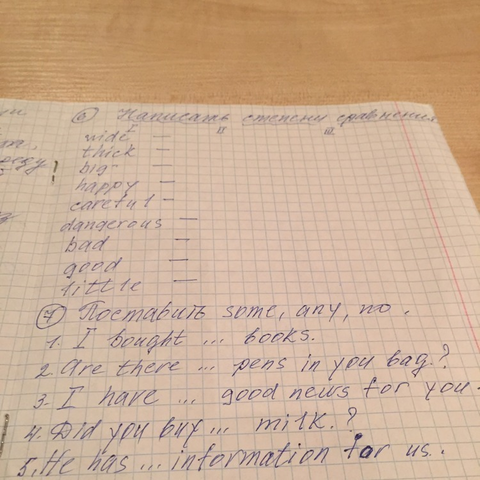 6 Написать степени сравнения.
I II III
wide —
thick —
big —
happy —
careful —
dangerous —
bad —
good —
little —
7 Поставить some, any, no.
1. I bought ... books.
2. Are there ... pens in you bag.?
3. I have ... good news for you.
4. Did you buy ... milk.?
5. He has ... information for us.